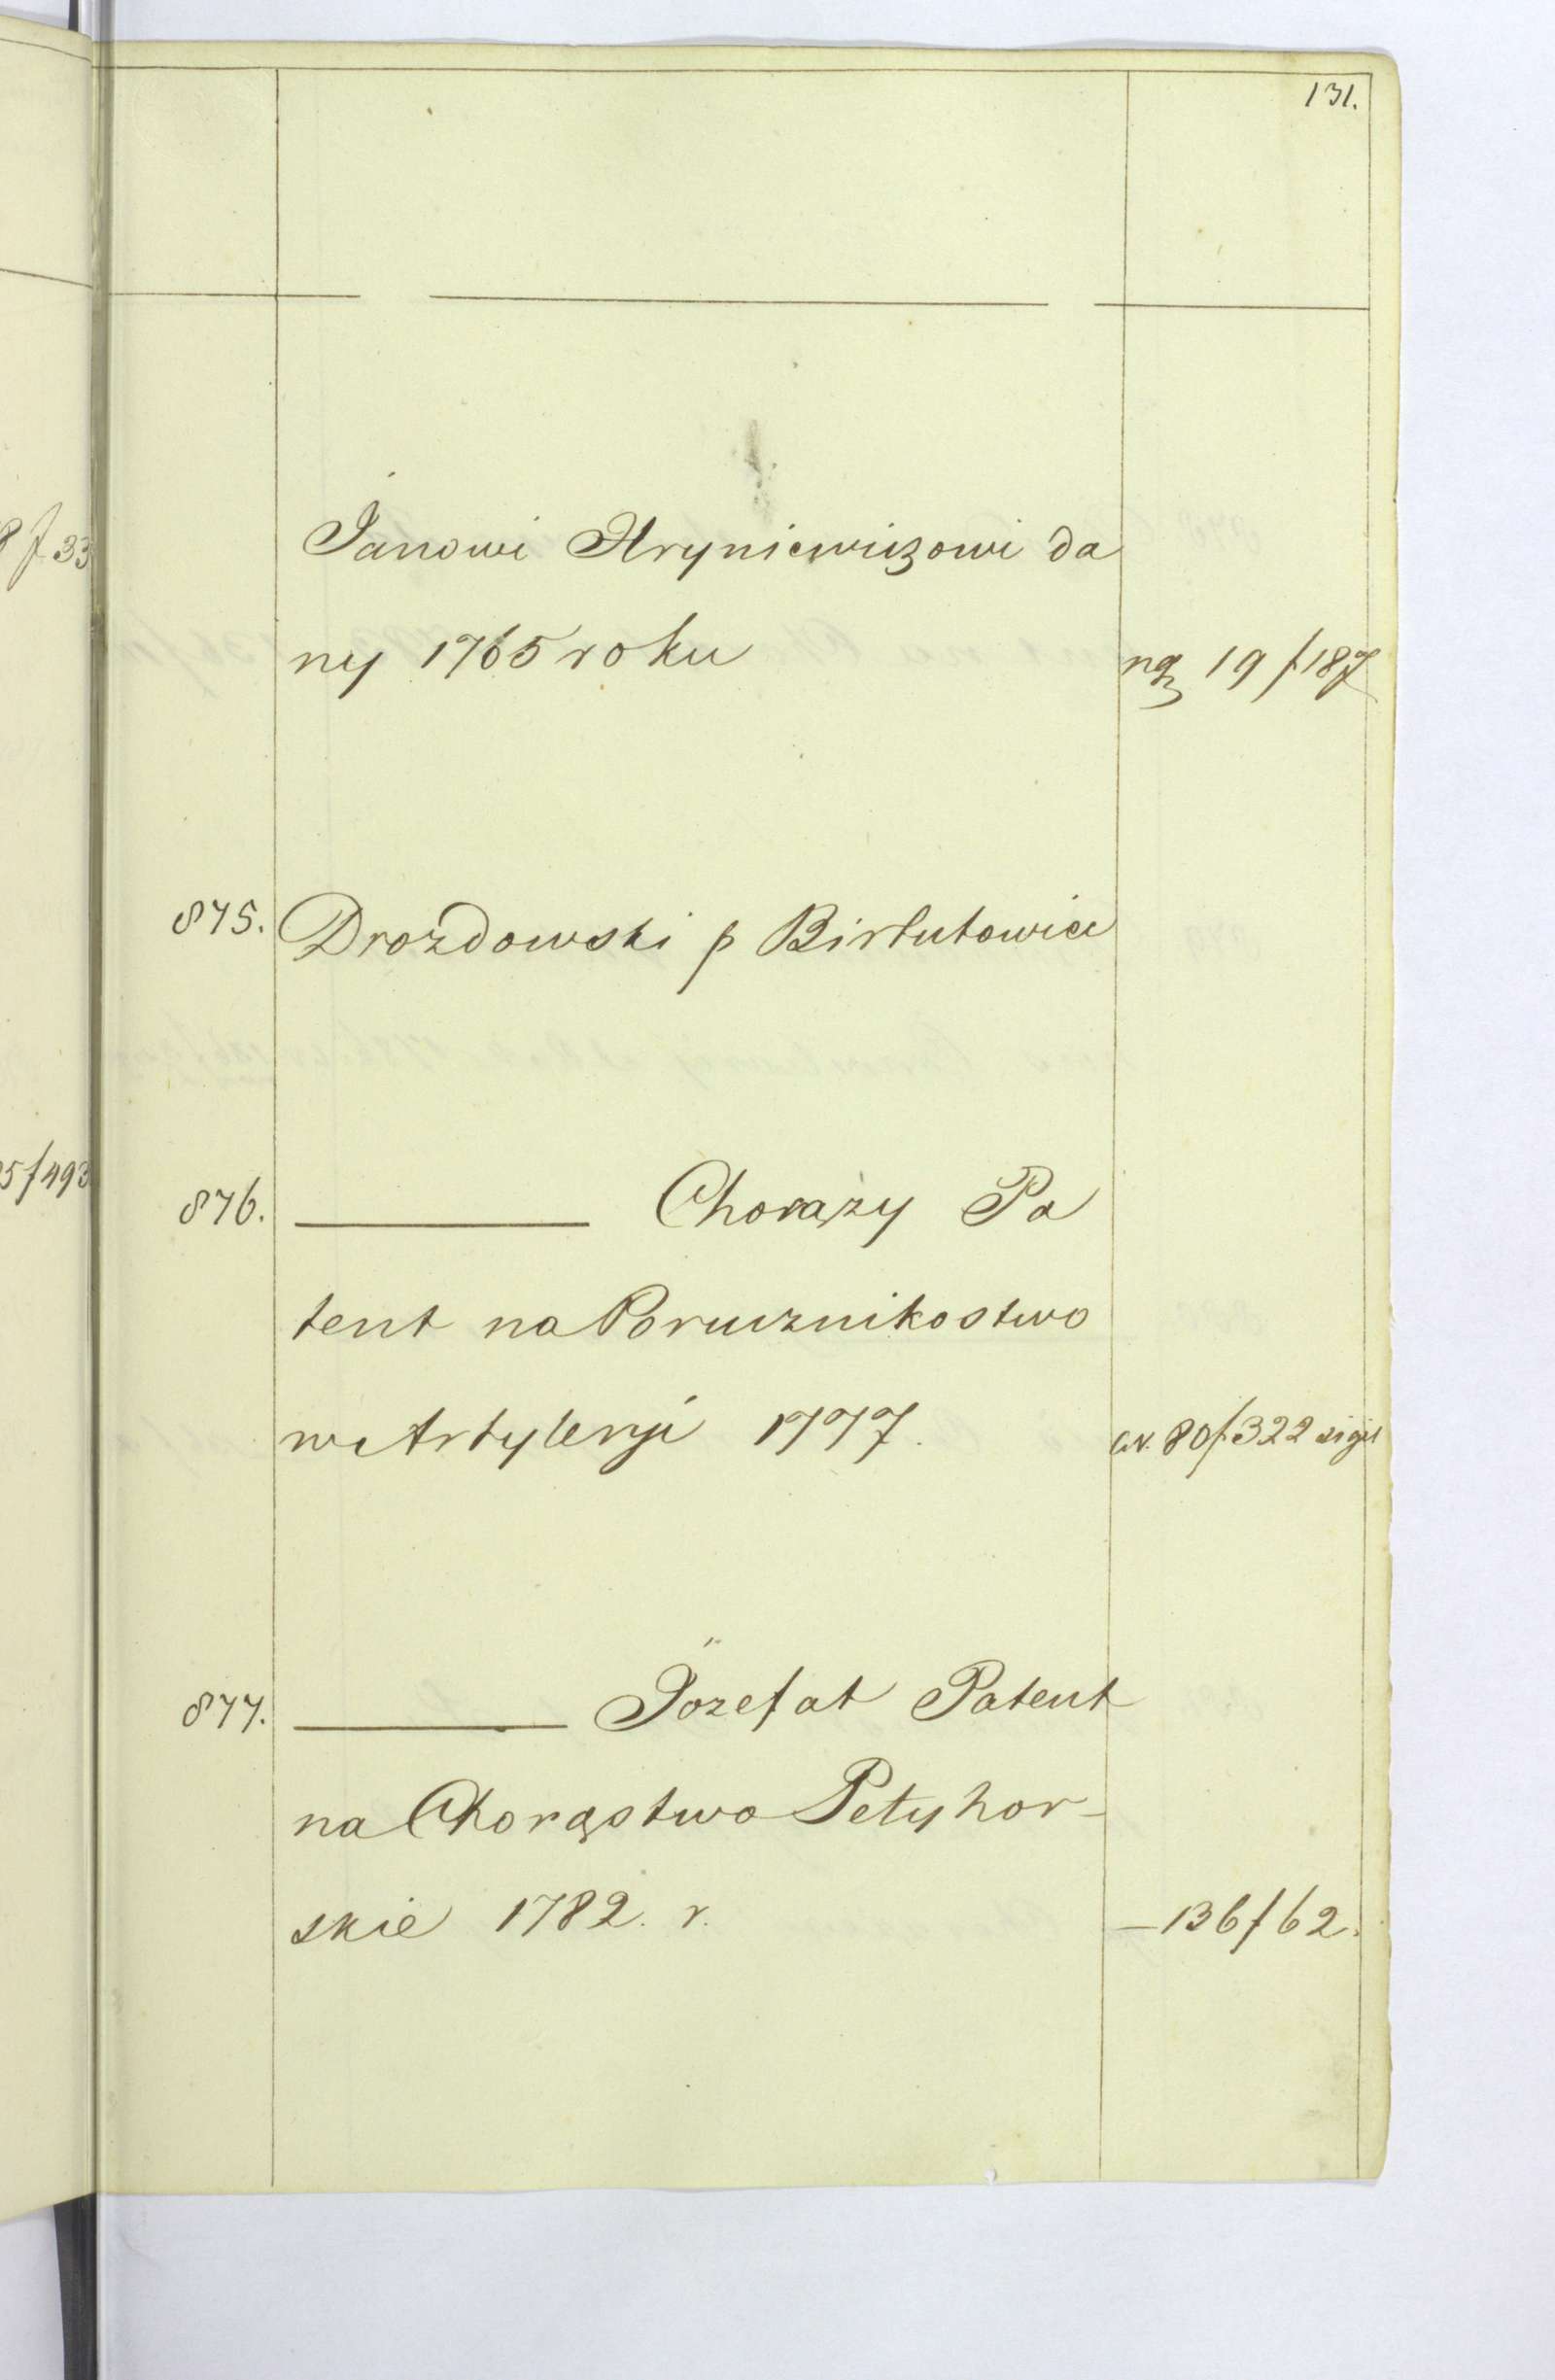 131.
8 f 33
Janowi Hryniewiczowi da
ny 1765 roku 19 f 187
875. Drozdowski p Birtutowicz
5 f 493
876. Chorąży Pa
tent na Porucznikostwo
w Artyleryi 1777. 80 f. 322 sigil
877. Jozefat Patent
na Chorąstwo Petyhor-
skie 1782. r. — 136 f 62.